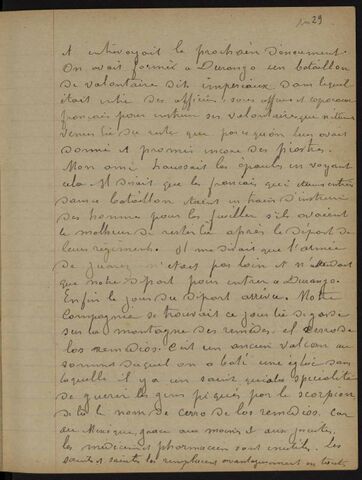 129
et entrevoyait le prochain dénouement.
On avait formé à Durango un bataillon
de volontaire dits impériaux dans lequel
était entré des officiers, sous officiers et caporaux
français pour
venus du reste que parcequ'on leur avait
donné et promis encore des piastres.
Mon ami haussait les épaules en voyant
cela. Il disait que les français qui étaient entrés
dans ce bataillon étaient en train d'instruire
des hommes pour les fusiller s'ils avaient
le malheur de rester là après le départ de
leurs régiments. Il me disait que l'armée
de Juarez n'était pas loin et n'attendait
que notre départ pour entrer à Durango.
Enfin le jour du départ arriva. Notre
compagnie se trouvait ce jour là de garde
sur la montagne des remèdes, el Cerro de
los remedios. C'est un ancien volcan au
sommet duquel on a bâti une église dans
laquelle il y a un saint qui a la spécialité
de guérir les gens piqués par le scorpion
de là le nom de cerro de los remedios. Car
au Mexique, grâce aux moines et aux jésuites
les médecins et pharmaciens sont inutiles. Les
saints et saintes les remplacent avantageusement en tout,